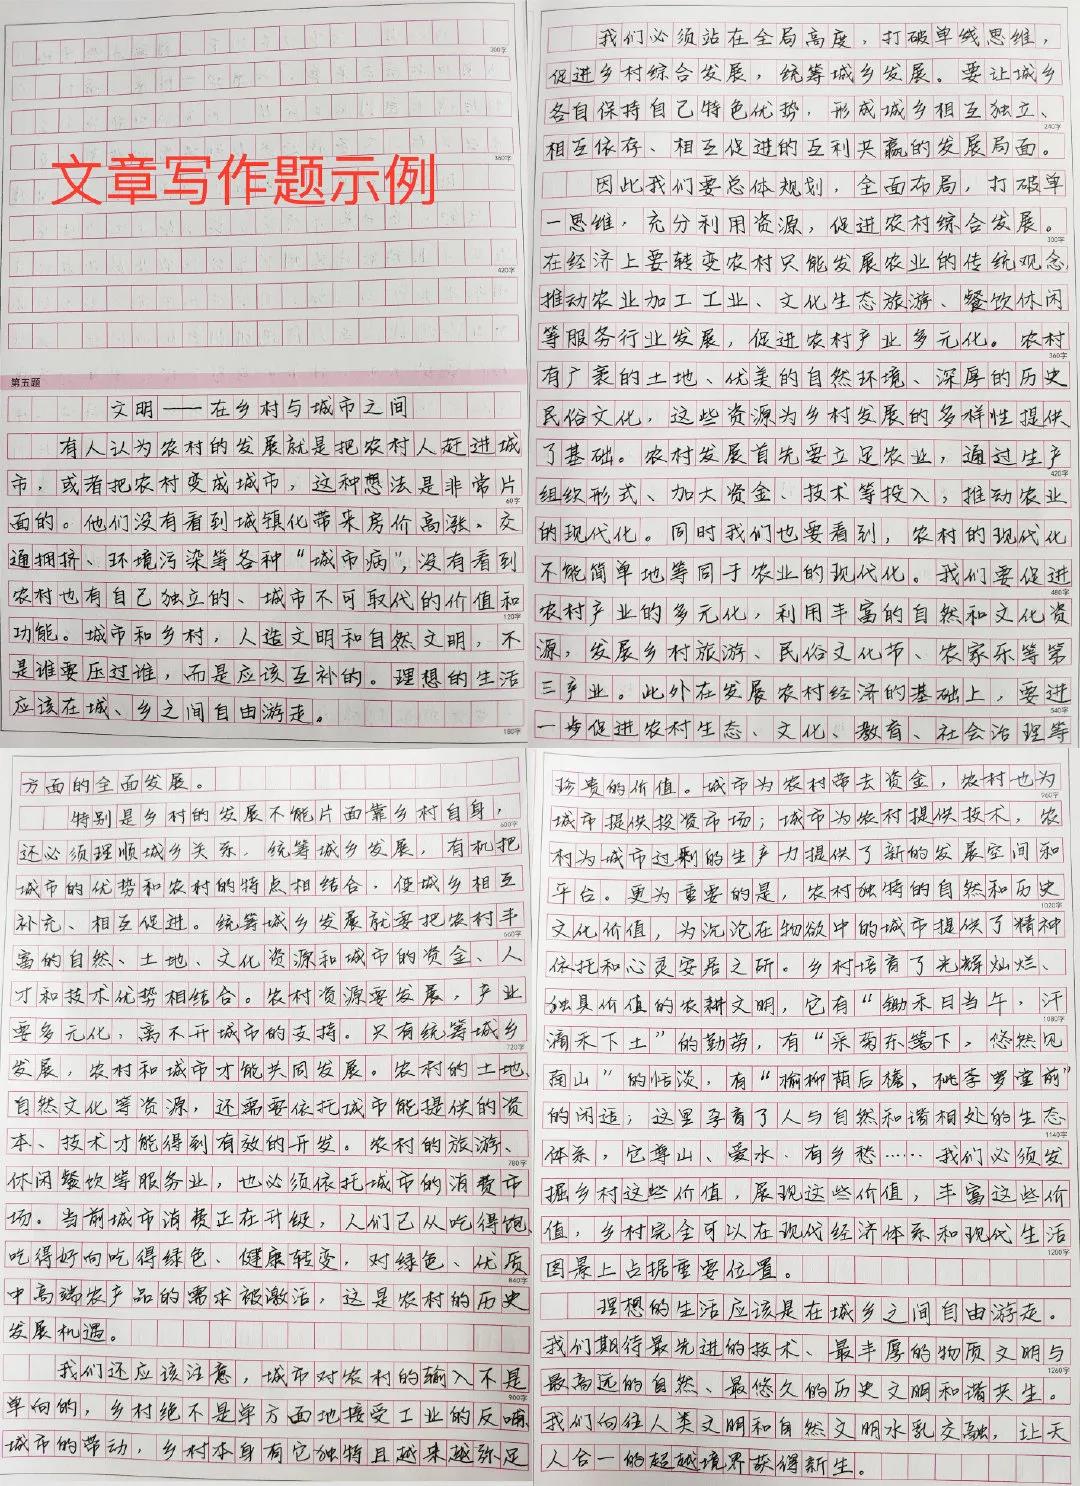 300字
360字
文章写作题示例
420字
第五题
文明——在乡村与城市之间
有人认为农村的发展就是把农村人赶进城
市，或者把农村变成城市，这种想法是非常片
60字
面的。他们没有看到城镇化带来房价高涨、交
通拥挤、环境污染等各种“城市病”，没有看到
农村也有自己独立的、城市不可取代的价值和
120字
功能。城市和乡村，人造文明和自然文明，不
是谁要压过谁，而是应该互补的。理想的生活
应该在城、乡之间自由游走。
180字
我们必须站在全局高度，打破单线思维，
促进乡村综合发展，统筹城乡发展。要让城乡
各自保持自己特色优势，形成城乡相互独立、
240字
相互依存、相互促进的互利共赢的发展局面。
因此我们要总体规划，全面布局，打破单
一思维，充分利用资源，促进农村综合发展。
300字
在经济上要转变农村只能发展农业的传统观念，
推动农业加工工业、文化生态旅游、餐饮休闲
等服务行业发展，促进农村产业多元化。农村
360字
有广袤的土地、优美的自然环境、深厚的历史
民俗文化，这些资源为乡村发展的多样性提供
了基础。农村发展首先要立足农业，通过生产
420字
组织形式、加大资金、技术等投入；推动农业
的现代化。同时我们也要看到，农村的现代化
不能简单地等同于农业的现代化。我们要促进
480字
农村产业的多元化，利用丰富的自然和文化资
源，发展乡村旅游、民俗文化节、农家乐等第
三产业。此外在发展农村经济的基础上，要进
540字
一步促进农村生态、文化、教育、社会治理等
方面的全面发展。
特别是乡村的发展不能片面靠乡村自身，
600字
还必须理顺城乡关系，统筹城乡发展，有机把
城市的优势和农村的特点相结合，使城乡相互
补充、相互促进。统筹城乡发展就要把农村丰
660字
富的自然、土地、文化资源和城市的资金、人
才和技术优势相结合。农村资源要发展，产业
要多元化，离不开城市的支持。只有统筹城乡
720字
发展，农村和城市才能共同发展。农村的土地、
自然文化等资源，还需要依托城市能提供的资
本、技术才能得到有效的开发。农村的旅游、
780字
休闲餐饮等服务业，也必须依托城市的消费市
场。当前城市消费正在升级，人们已从吃得饱、
吃得好向吃得绿色、健康转变，对绿色、优质
840字
中高端农产品的需求被激活，这是农村的历史
发展机遇。
我们还应该注意，城市对农村的输入不是
900字
单向的，乡村绝不是单方面地接受工业的反哺，
城市的带动，乡村本身有它独特且越来越弥足
珍贵的价值。城市为农村带去资金，农村也为
960字
城市提供投资市场；城市为农村提供技术，农
村为城市过剩的生产力提供了新的发展空间和
平台。更为重要的是，农村独特的自然和历史
1020字
文化价值，为沉沦在物欲中的城市提供了精神
依托和心灵安居之所。乡村培育了光辉灿烂、
独具价值的农耕文明，它有“锄禾日当午，汗
1080字
滴禾下土”的勤劳，有“采菊东篱下，悠然见
南山”的恬淡，有“榆柳荫后檐，桃李罗堂前”
的闲适；这里孕育了人与自然和谐相处的生态
1140字
体系，它尊山、爱水、有乡愁……我们必须发
掘乡村这些价值，展现这些价值，丰富这些价
值，乡村完全可以在现代经济体系和现代生活
1200字
图景上占据重要位置。
理想的生活应该是在城乡之间自由游走。
我们期待最先进的技术、最丰厚的物质文明与
1260字
最高远的自然、最悠久的历史文明和谐共生。
我们向往人类文明和自然文明水乳交融，让天
人合一的超越境界获得新生。